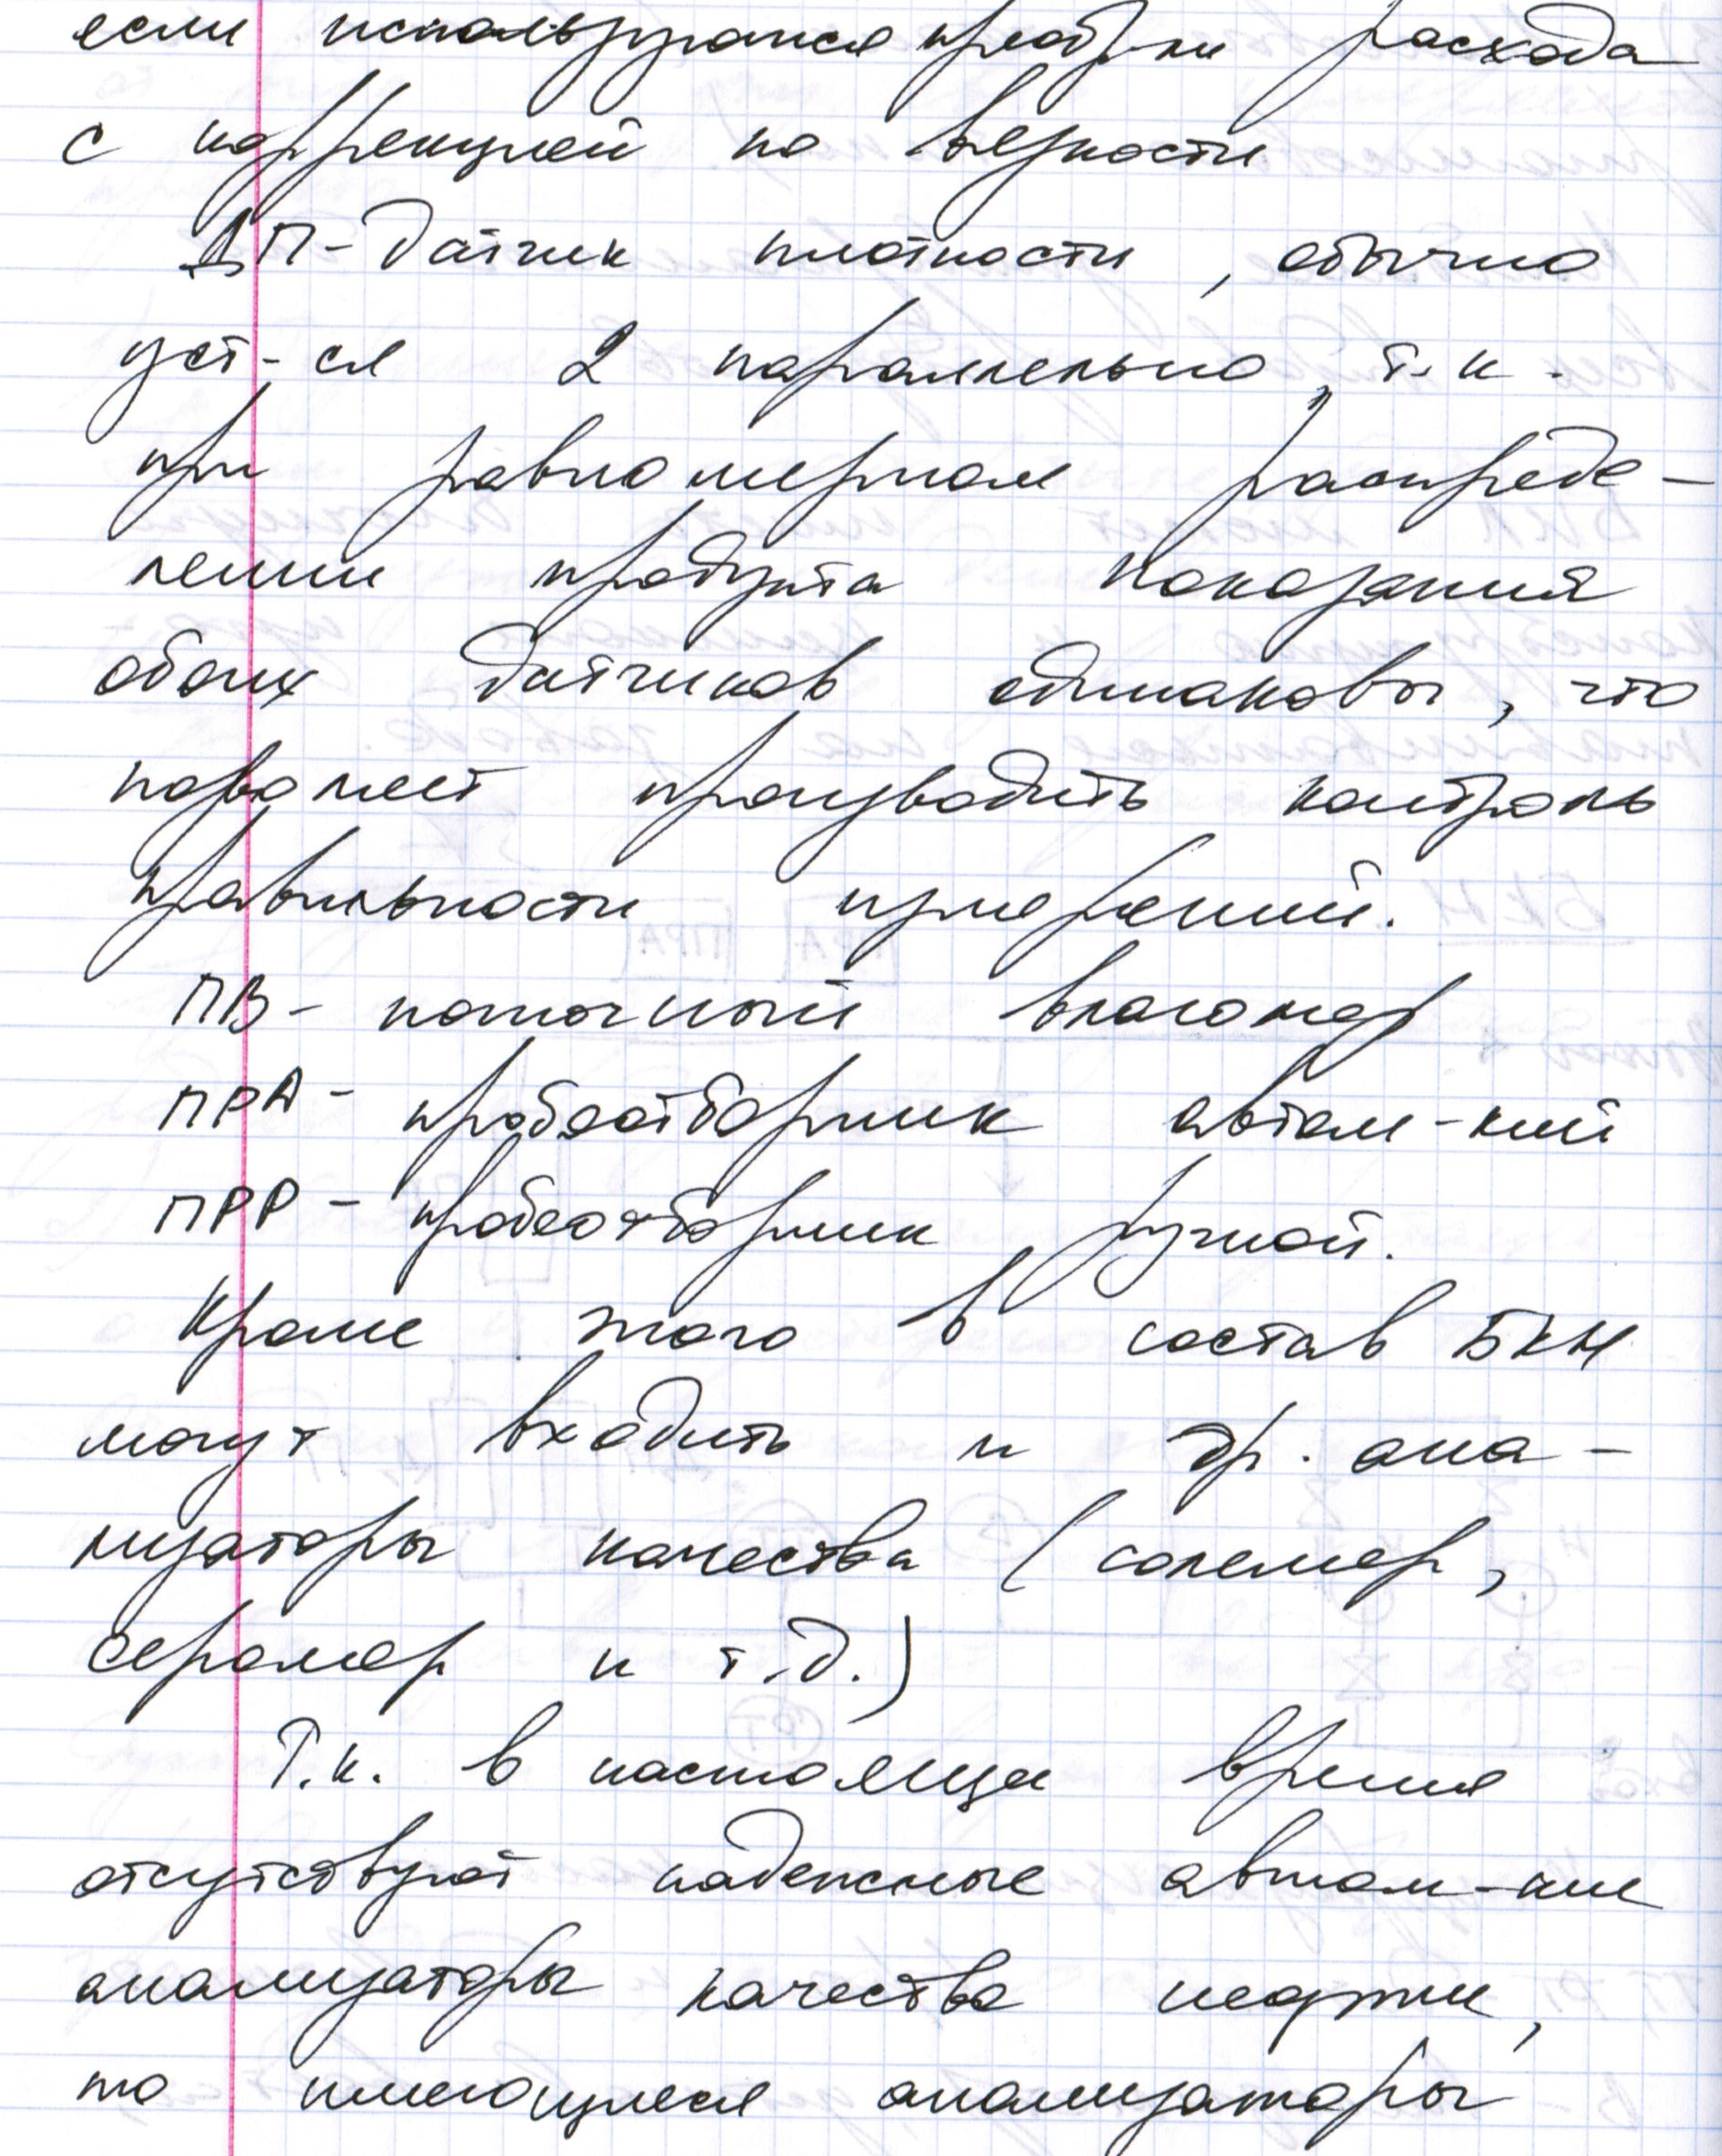 если используются преобр-ки расхода
с коррекцией по вязкости
ДП - датчик плотности, обычно
уст-ся 2 параллельно, т.к.
при равномерном распреде-
лении продукта показания
обоих датчиков одинаковы, что
позволяет производить контроль
правильности измерений.
ПВ - поточный влагомер
ПРА - пробоотборник автом-кий
ПРР - пробоотборник ручной.
Кроме этого в состав БКН
могут входить и др. ана-
лизаторы качества (солемер,
серомер и т.д.)
Т.к. в настоящее время
отсутствуют надежные автом-кие
анализаторы качества нефти,
то имеющиеся анализаторы